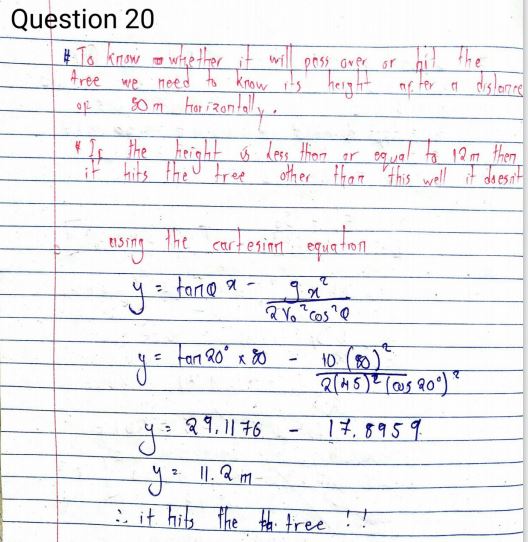 Question 20
# To know whether it will pass over or hit the
tree we need to know its height after a distance
of 80 m horizontally.
* If the height is less than or equal to 12m then
it hits the tree other than this well it doesn't
using the cartesian equation
y = tanθ x - gx² / 2V₀²cos²θ
y = tan20° x 80 - 10(80)² / 2(45)²(cos 20°)²
y = 29.1176 - 17.8959
y = 11.2 m
∴ it hits the tree !!